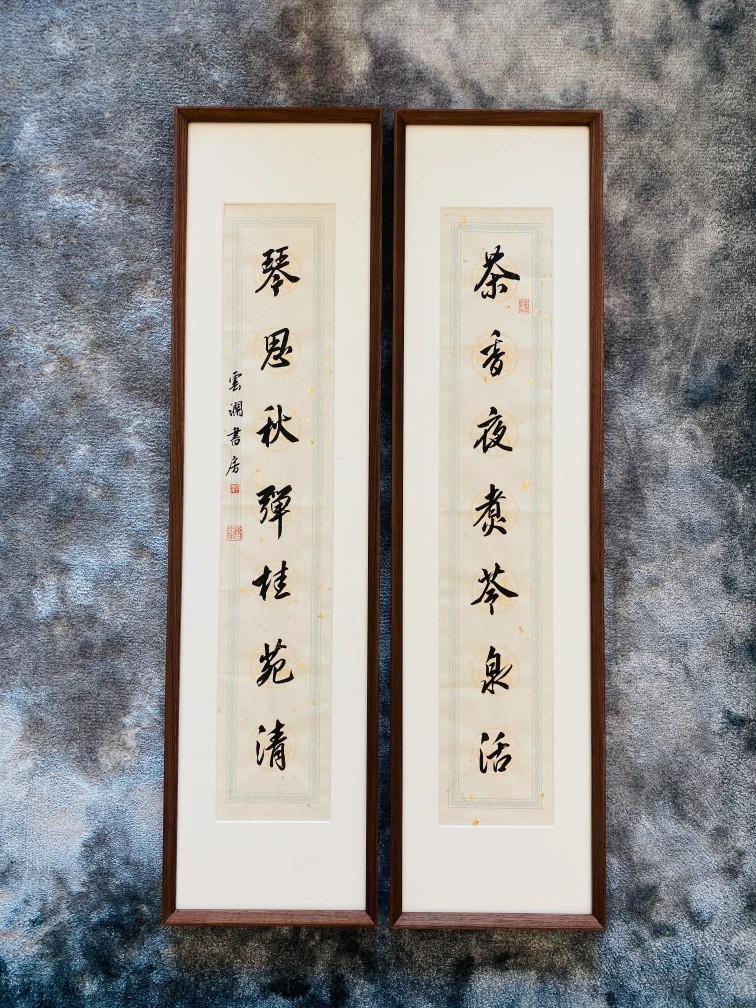 茶香夜煮苓泉活
琴思秋弹桂苑清
雲瀾書房